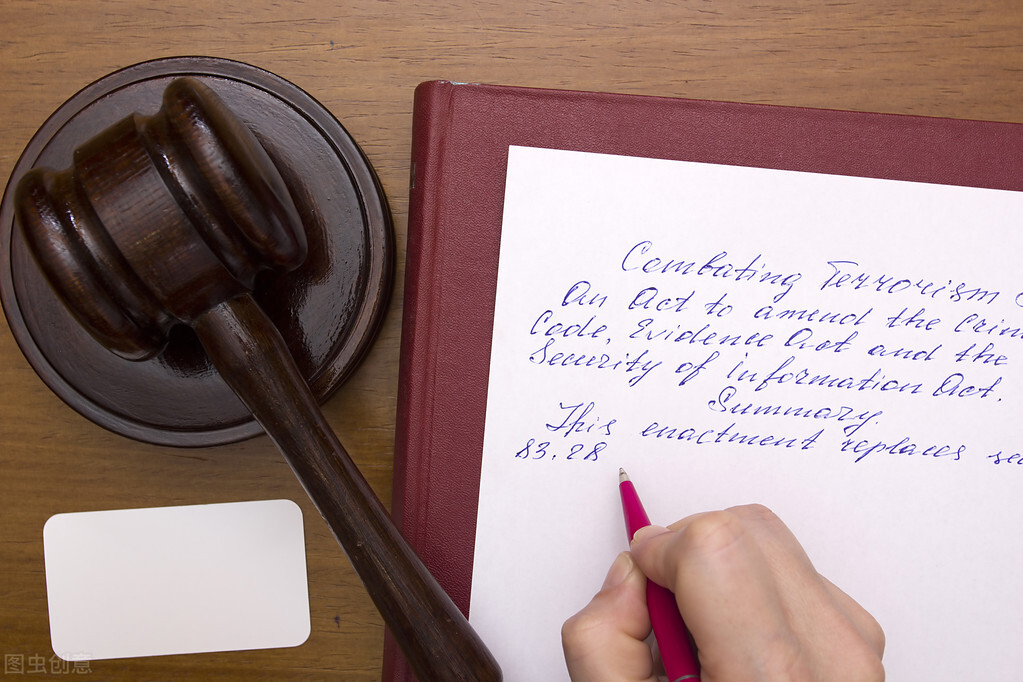 Combating Terrorism
An Act to amend the Crim
Code, Evidence Act and the
Security of information Act.
Summary.
This enactment replaces se
83.28
图虫创意